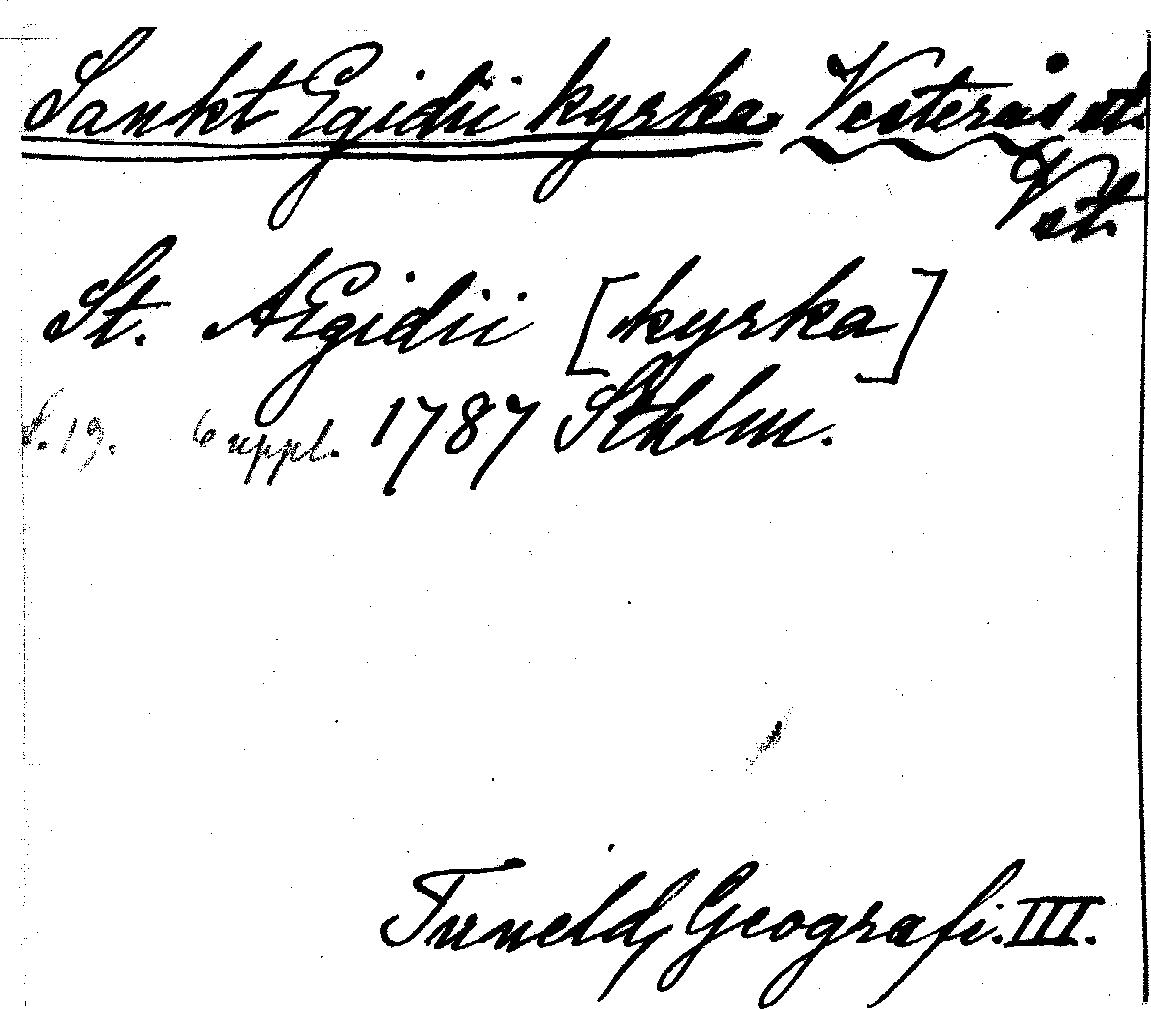 Sankt Egidii kyrka. Vesterås st.
Vst.
St. AEgidii [kyrka]
S. 19. 6 uppl. 1787 Sthlm.
Tuneld, Geografi. III.